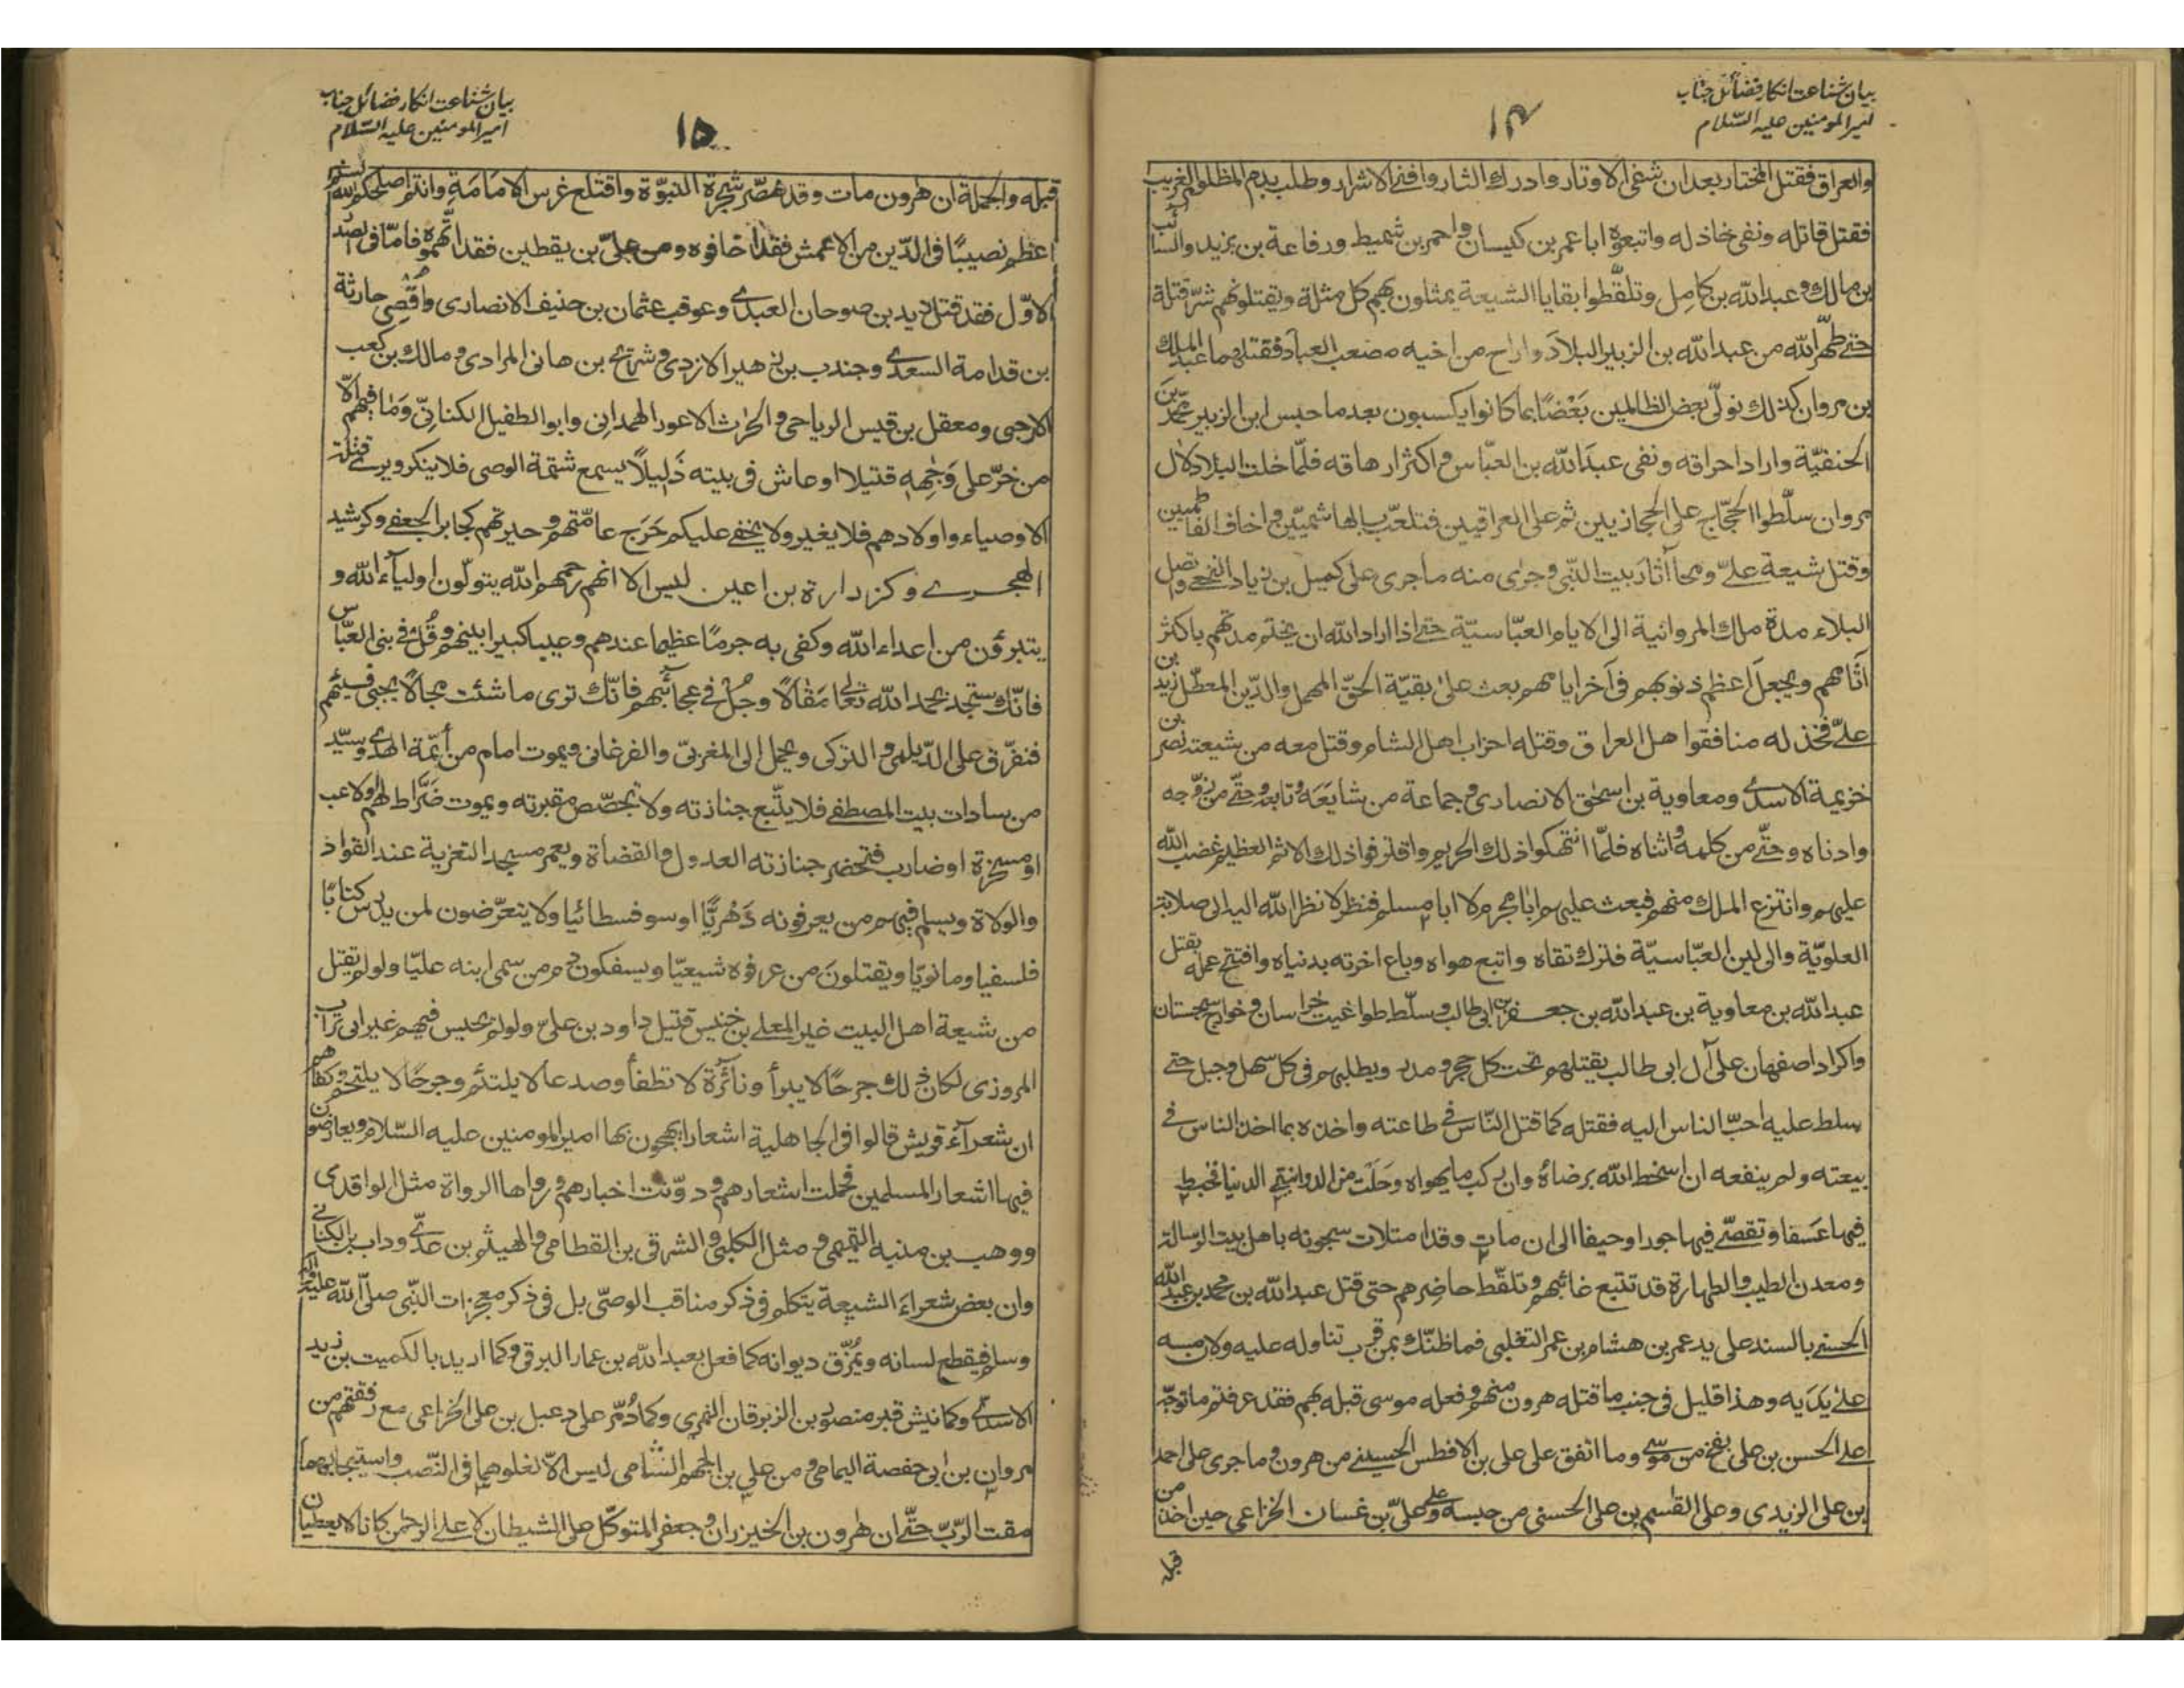 بیان شناعت انکار فضائل جناب
امیر المومنین علیه السّلام
۱۴
والعراق فقتل المختار بعد ان شفی الاوتار وادرك الثار وافنی الاشرار وطلب بدم المظلوم الغریب
فقتل قاتله ونفی خاذله واتبعوه ابا عمر بن کیسان واحمر بن شمیط ورفاعة بن یزید والسائب
بن مالك وعبد الله بن کامل وتلقّطوا بقایا الشیعة یمثلون بهم کل مثلة ویقتلونهم شرّ قتلة
حتے طهّر الله من عبد الله بن الزبیر البلاد واراح من اخیه مصعب العباد فقتلهما عبد الملك
بن مروان کذلك نولّی بعض الظالمین بَعْضًا بما کانوا یکسبون بعد ما حبس ابن الزبیر محمّد بن
الحنفیّة واراد احراقه ونفی عبدَ الله بن العبّاس واکثر ارهاقه فلمّا خلت البلاد لاٰل
مروان سلّطوا الحجّاج علی الحجازیین ثم علی العراقیین فتلعّب بالهاشمیّین واخاف الفاطمیین
وقتل شیعة علیّ ومحا آثارَ بیت النّبی وجرٰی منه ما جری علی کمیل بن زیاد النخعے واتصل
البلاء مدة ملك المروانیة الی الایام العبّاسیّة حتے اذا اراد الله ان یختم مدتهم باکثر
آثامهم ویجعلَ اعظم ذنوبهم فی آخر ایامهم بعث علیٰ بقیّة الحقّ المهمل والدّین المعطّل زید بن
علیّ فخذله منافقوا هل العراق وقتله احزاب اهل الشام وقتل معه من شیعته نصر بن
خزیمة الاسدے ومعاویة بن اسحٰق الانصاری وجماعة من شایَعَه وتابعه وحتّے من زوّجه
وادناه وحتّے من کلمه واثناه فلمّا انتهکوا ذلك الحریم واقترفوا ذلك الاثم العظیم غضب الله
علیهم وانتزع الملك منهم فبعث علیهم ابا مجرم لا ابا مسلم فنظر لا نظر الله الیه الی صلابة
العلویّة والی لین العبّاسیّة فترك تقاه واتبع هواه وباع اخرته بدنیاه وافتتح عمله بقتل
عبد الله بن معاویة بن عبد الله بن جعفر بن ابی طالب وسلّط طواغیت خراسان وخوارج سجستان
واکراد اصفهان علی آل ابی طالب یقتلهم تحت کل حجر ومدر ویطلبهم فی کل سهل وجبل حتے
سلط علیه احبّ الناس الیه فقتله کما قتل النّاس فی طاعته واخذه بما اخذ الناس فے
بیعته ولم ینفعه ان اسخط الله برضاه وان رکب ما یهواه وخلت من الدوانیقے الدنیا فخبط
فیها عَسَفا وتقصّے فیها جورا وحیفا الی ان مات وقد امتلات سجونه باهل بیت الرسالة
ومعدن الطیب والطهارة قد تتبع غائبهم وتلقّط حاضِرهم حتی قتل عبد الله بن محمد بن عبد الله
الحسنے بالسند علی ید عمر بن هشام بن عمر التغلبی فما ظنّك بمن قرب تناوله علیه ولان مسه
علےٰ یَدَیه وهذا قلیل فی جنب ما قتله هرون منهم وفعله موسی قبله بهم فقد عرفتم ما توجّه
علے الحسن بن علی بفخ من موسٰے وما اتفق علی علی بن الافطس الحسینے من هرون وما جری علی احمد
بن علی الزیدی وعلی القٰسم بن علی الحسنی من حبسه وعلے علیّ بن غسان الخزاعی حین اخذ من
قبله
بیان شناعت انکار فضائل جناب
امیر المومنین علیه السّلام
۱۵
قبله والجملة ان هرون مات وقد هَصَّر شجرة النبوّة واقتلع غرس الامامَةِ وانتم اصلحکم الله لستم
اعظم نصیبًا فی الدّین من الاعمش فقد اخافوه ومن علیّ بن یقطین فقد اتّهموه فامّا فی الصّدر
الاوّل فقد قتل زید بن صوحان العبدے وعوقب عثمان بن حنیف الانصاری واُقْصِی حارثة
بن قدامة السعدے وجندب بن زهیر الازدی وشریح بن هانی المرادی ومالك بن کعب
الارحبی ومعقل بن قیس الریاحی والحٰرث الاعور الهمدانی وابو الطفیل الکنانیّ وَمٰا فیهم الّا
من خرّ علی وَجْهِهٖ قتیلا او عاش فی بیته ذَلِیلًا یسمع شتمة الوصی فلا ینکر ویرے قتلة
الاوصیاء واولادهم فلا یغیر ولا یخفے علیکم حَرَج عامّتهم وحیرتهم کجابر الجعفے وکرشید
الهجرے وکزرارة بن اعین لیس الا انهم رحمهم الله یتولّون اولیآء الله و
یتبرؤن من اعداء الله وکفی به جرمًا عظیما عندهم وعیبا کبیرا بینهم وقُلْ فے بنی العبّاس
فانّك ستجد بحمد الله تعالٰی مَقٰالًا وجُلْ فے عجائبهم فانّك تری ما شئت مجالًا یجبی فیئهم
فتفرّق علی الدّیلمی والترکی ویحمل الی المغربیّ والفرغانی ویموت امام من أئمّة الهدے وسیّد
من سادات بیت المصطفے فلا یتّبع جنازته ولا تجصّص مقبرته ویموت ضَرّاط لهم ولاعب
او مسخرة او ضارب فتحضر جنازته العدول والقضاة ویعمر مسجد التعزیة عند القواد
والولاة ویسلم فیهم من یعرفونه دَهْریًّا او سوفسطائیا ولا یتعرّضون لمن یدرس کتابًا
فلسفیا ومانویّا ویقتلونَ من عرفوه شیعیّا ویسفکون دم من سمی ابنه علیّا ولو لم یقتل
من شیعة اهل البیت غیر المعلے بن خنیس قتیل داود بن علیّ ولو لم یحبس فیهم غیر ابی تراب
المروزی لکان ذلك جرحًا لا یبرأ ونائرة لا تطفأ وصدعا لا یلتئم وجرحًا لا یلتحم وکفاهم
ان شعرآء قریش قالوا فی الجاهلیة اشعارا یهجون بها امیر المومنین علیه السّلام ویعارضون
فیها اشعار المسلمین فحملت اشعارهم ودوّنت اخبارهم ورواها الرواة مثل الواقدی
ووهب بن منبه التمیمی ومثل الکلبی والشرقی بن القطامی والهیثم بن عدّی وداب بن الکنانے
وان بعض شعراءَ الشیعة یتکلم فی ذکر مناقب الوصیّ بل فی ذکر معجزات النّبی صلّی الله علیه واله
وسلم فیقطع لسانه ویُمزّق دیوانه کما فعل بعبد الله بن عمار البرقی وکما ارید بالکمیت بن زید
الاسدے وکما نبش قبر منصور بن الزبرقان النمری وکما دُمّر علی دعبل بن علی الخزاعی مع رفقتهم من
مروان بن ابی حفصة الیمامی ومن علی بن الجهم الشّامی لیس الّا لغلوهما فی النّصب واستیجابهما
مقت الرّبّ حتّے ان هرون بن الخیزران وجعفر المتوکّل علی الشیطان لا علے الرحمٰن کانا لا یعطیان